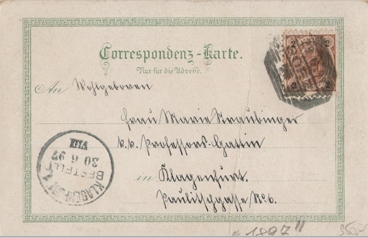 Correspondenz-Karte.
Nur für die Adresse.
An Wohlgeboren
Frau Marie Kraubinger
k.k. Professors-Gattin
in Klagenfurt
Paulitschgasse No 6.
KLAGENFURT 1
BESTELLT
30 6 97
VIII
"1897"